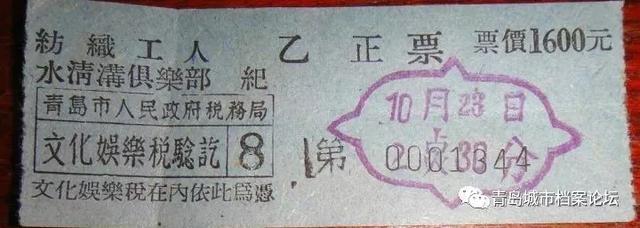 紡織工人 乙 正票 票價1600元
水淸溝俱樂部 紀
青島市人民政府税務局
文化娛樂税驗訖 8
第 0001344
文化娛樂税在內依此為憑
10月23日
点30分
青岛城市档案论坛